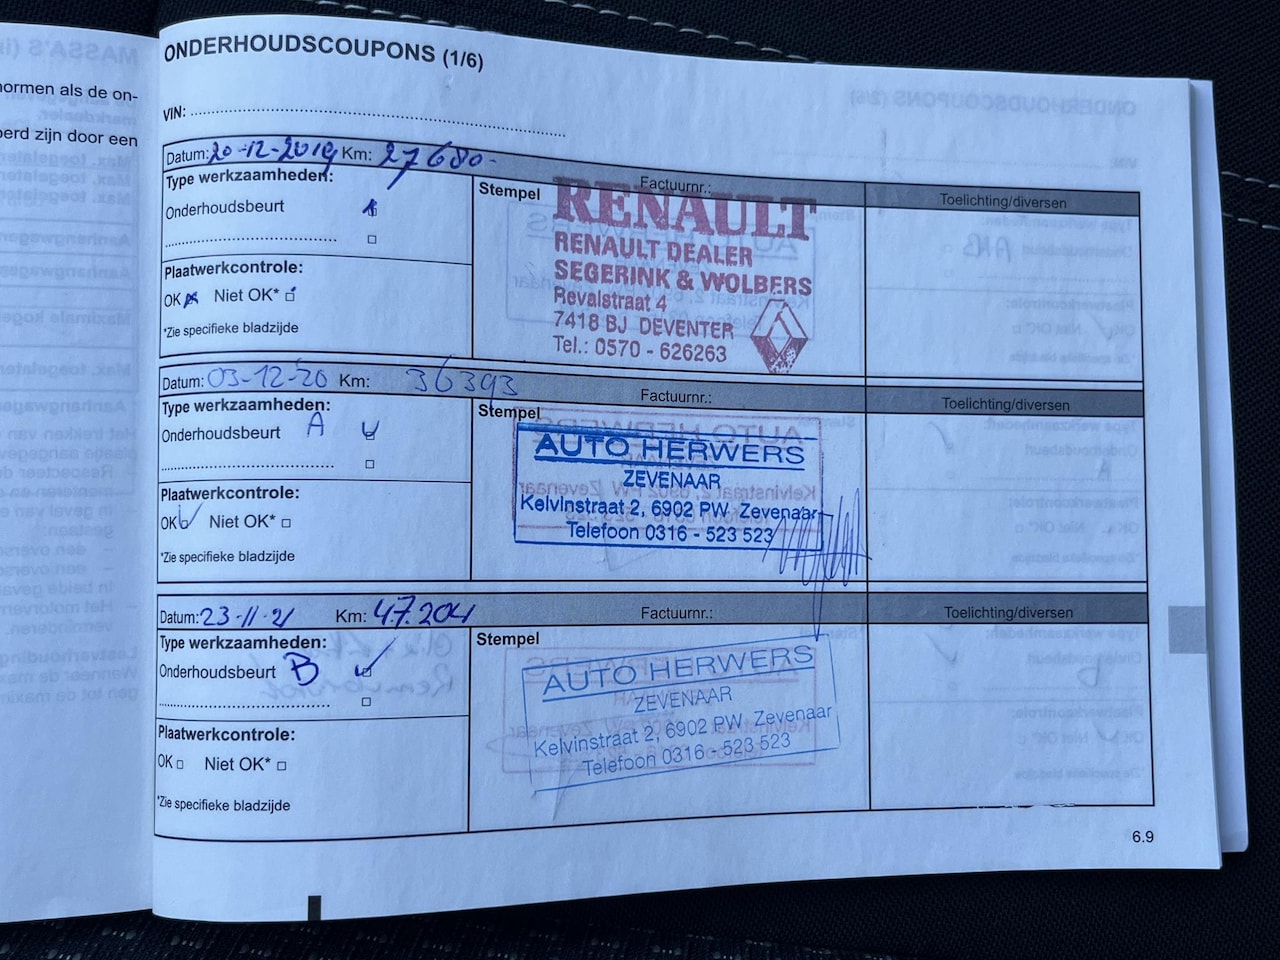 ormen als de on-
erd zijn door een
ONDERHOUDSCOUPONS (1/6)
VIN:
Datum: 20-12-2019 Km: 27680-
Factuurnr.:
Toelichting/diversen
Type werkzaamheden:
Onderhoudsbeurt
Plaatwerkcontrole:
OK Niet OK*
*Zie specifieke bladzijde
Stempel
RENAULT
RENAULT DEALER
SEGERINK & WOLBERS
Revalstraat 4
7418 BJ DEVENTER
Tel.: 0570 - 626263
Datum: 03-12-20 Km: 36393
Factuurnr.:
Toelichting/diversen
Type werkzaamheden:
Onderhoudsbeurt A
Plaatwerkcontrole:
OK Niet OK*
*Zie specifieke bladzijde
Stempel
AUTO HERWERS
ZEVENAAR
Kelvinstraat 2, 6902 PW Zevenaar
Telefoon 0316 - 523 523
Datum: 23-11-21 Km: 47.204
Factuurnr.:
Toelichting/diversen
Type werkzaamheden:
Onderhoudsbeurt B
Plaatwerkcontrole:
OK Niet OK*
*Zie specifieke bladzijde
Stempel
AUTO HERWERS
ZEVENAAR
Kelvinstraat 2, 6902 PW Zevenaar
Telefoon 0316 - 523 523
6.9